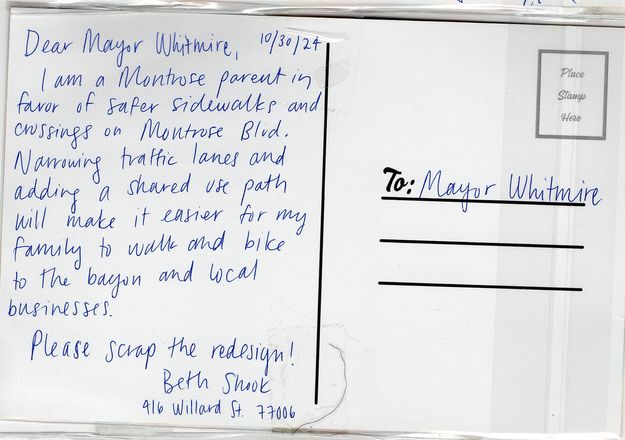 Dear Mayor Whitmire, 10/30/24
I am a Montrose parent in
favor of safer sidewalks and
crossings on Montrose Blvd.
Narrowing traffic lanes and
adding a shared use path
will make it easier for my
family to walk and bike
to the bayou and local
businesses.
Please scrap the redesign!
Beth Shook
416 Willard St. 77006
Place
Stamp
Here
To: Mayor Whitmire